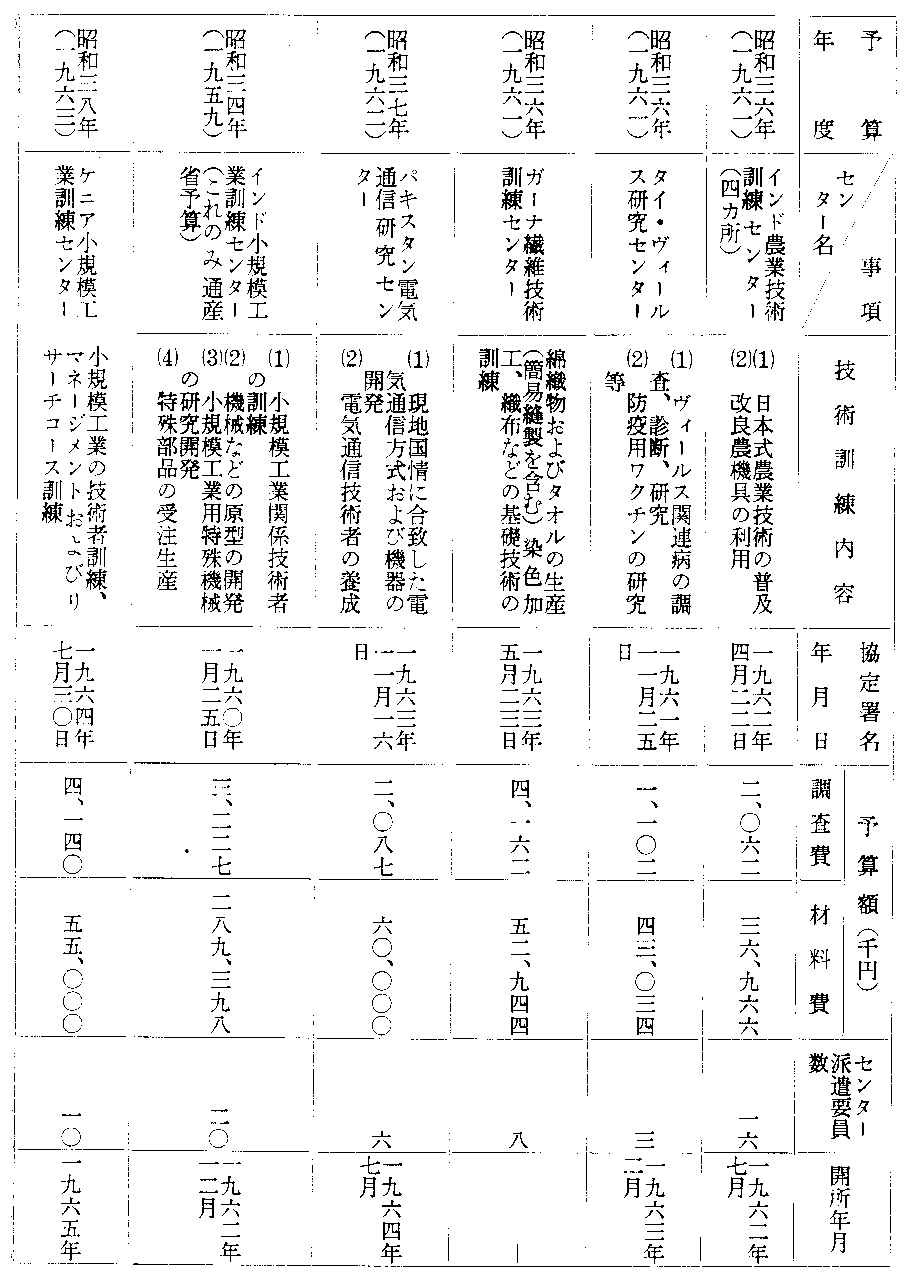 予算
年度
事項
センター名
技術訓練内容
協定署名
年月日
予算額(千円)
調査費
材料費
センター
派遣要員
数
開所年月
昭和三六年
(一九六一)
インド農業技術
訓練センター
(四カ所)
(1) 日本式農業技術の普及
(2) 改良農機具の利用
一九六二年
四月二二日
二、〇六二
三六、九六六
一六
一九六二年
七月
昭和三六年
(一九六一)
タイ・ヴィール
ス研究センター
(1) ヴィールス関連病の調
査、診断、研究
(2) 防疫用ワクチンの研究
等
一九六一年
一一月二五
日
一、一〇二
四三、〇三四
三
一九六三年
二月
昭和三六年
(一九六一)
ガーナ繊維技術
訓練センター
綿織物およびタオルの生産
(簡易縫製を含む)染色加
工、織布などの基礎技術の
訓練
一九六三年
五月二三日
四、一六二
五二、九四四
八
昭和三七年
(一九六二)
パキスタン電気
通信研究セン
ター
(1) 現地国情に合致した電
気通信方式および機器の
開発
(2) 電気通信技術者の養成
一九六三年
一一月一六
日
二、〇八七
六〇、〇〇〇
六
一九六四年
七月
昭和三四年
(一九五九)
インド小規模工
業訓練センター
(これのみ通産
省予算)
(1) 小規模工業関係技術者
の訓練
(2) 機械などの原型の開発
(3) 小規模工業用特殊機械
の研究開発
(4) 特殊部品の受注生産
一九六〇年
一月二五日
三、二二七
二八九、三九八
二〇
一九六二年
一二月
昭和三八年
(一九六三)
ケニア小規模工
業訓練センター
小規模工業の技術者訓練、
マネージメントおよびリ
サーチコース訓練
一九六四年
七月三〇日
四、一四〇
五五、〇〇〇
一〇
一九六五年